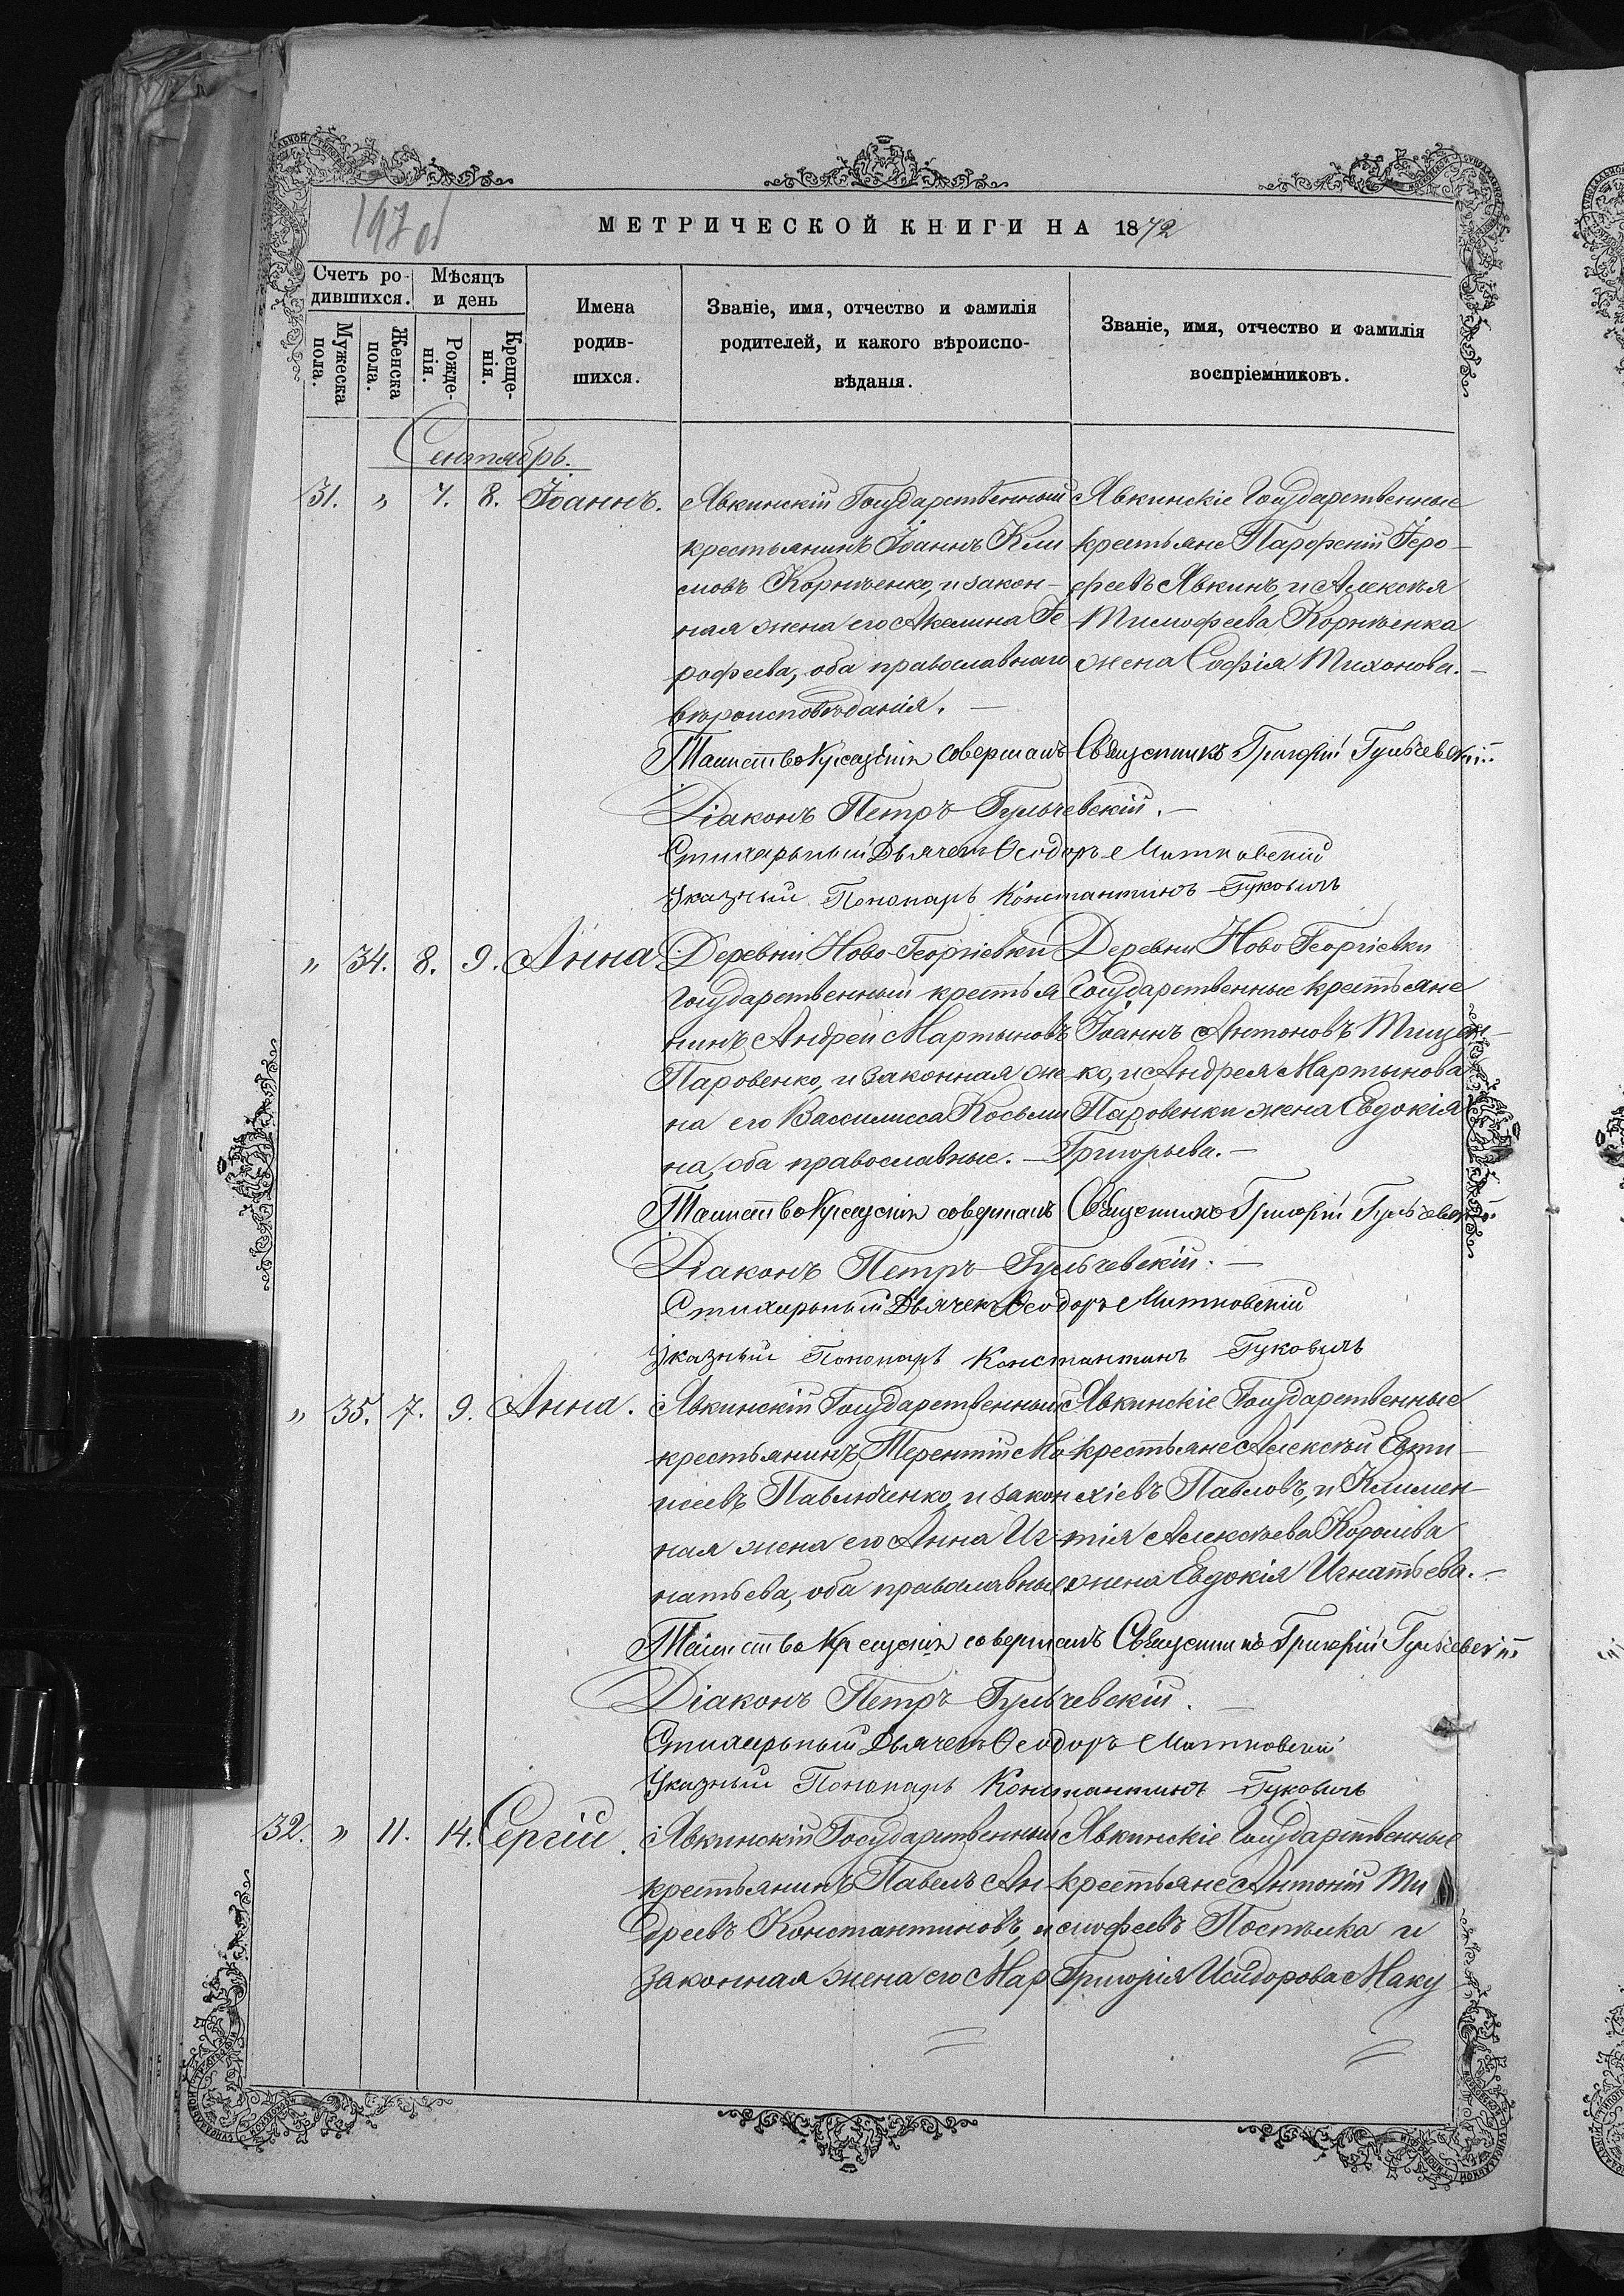 197 об
МЕТРИЧЕСКОЙ КНИГИ НА 1872
Счетъ ро-
дившихся.
Мѣсяцъ
и день
Мужеска
пола.
Женска
пола.
Рожде-
нія.
Креще-
нія.
Имена
родив-
шихся.
Званіе, имя, отчество и фамилія
родителей, и какого вѣроиспо-
вѣданія.
Званіе, имя, отчество и фамилія
воспріемниковъ.
Сентябрь.
31. „ 7. 8. Іоаннъ.
Явкинскій Государственный
крестьянинъ Іоаннъ Кли
мовъ Корніенко, и закон-
ная жена его Акилина Ге
рофеева, оба православнаго
вѣроисповѣданія. —
Явкинскіе Государственные
крестьяне Парфеній Геро-
феевъ Явкинъ, и Алексѣя
Тимофеева Корніенка
жена Софія Тихонова. —
Таинство Крещенія совершалъ Священникъ Григорій Гульчевскій.
Діаконъ Петръ Гульчевскій. —
Стихарный Дьячекъ Ѳеодоръ Митковскій
Указный Пономарь Константинъ Гуковичъ
„ 34. 8. 9. Анна.
Деревни Ново-Георгіевки
Государственный крестья
нинъ Андрей Мартыновъ
Паровенко, и законная же
на его Вассилисса Косьми
на, оба православные. —
Деревни Ново Георгіевки
Государственные крестьяне
Іоаннъ Антоновъ Тищен-
ко, и Андрея Мартынова
Паровенки жена Евдокія
Григорьева. —
Таинство Крещенія совершалъ Священникъ Григорій Гульчевскій.
Діаконъ Петръ Гульчевскій. —
Стихарный Дьячекъ Ѳеодоръ Митковскій
Указный Пономарь Константинъ Гуковичъ
„ 35. 7. 9. Анна.
Явкинскій Государственный
крестьянинъ Терентій Мо
исеевъ Павлюченко, и закон
ная жена его Анна Иг-
натьева, оба православные
Явкинскіе Государственные
крестьяне Алексѣй Евти-
хіевъ Павловъ, и Климен-
тія Алексѣева Королева
жена Евдокія Игнатьева. —
Таинство Крещенія совершалъ Священникъ Григорій Гульчевскій.
Діаконъ Петръ Гульчевскій. —
Стихарный Дьячекъ Ѳеодоръ Митковскій
Указный Пономарь Константинъ Гуковичъ
32. „ 11. 14. Сергій.
Явкинскій Государственный
крестьянинъ Павелъ Ан
дреевъ Константиновъ, и
законная жена его Мар
Явкинскіе Государственные
крестьяне Антоній Ти
мофеевъ Постыка и
Григорія Исидорова Маку